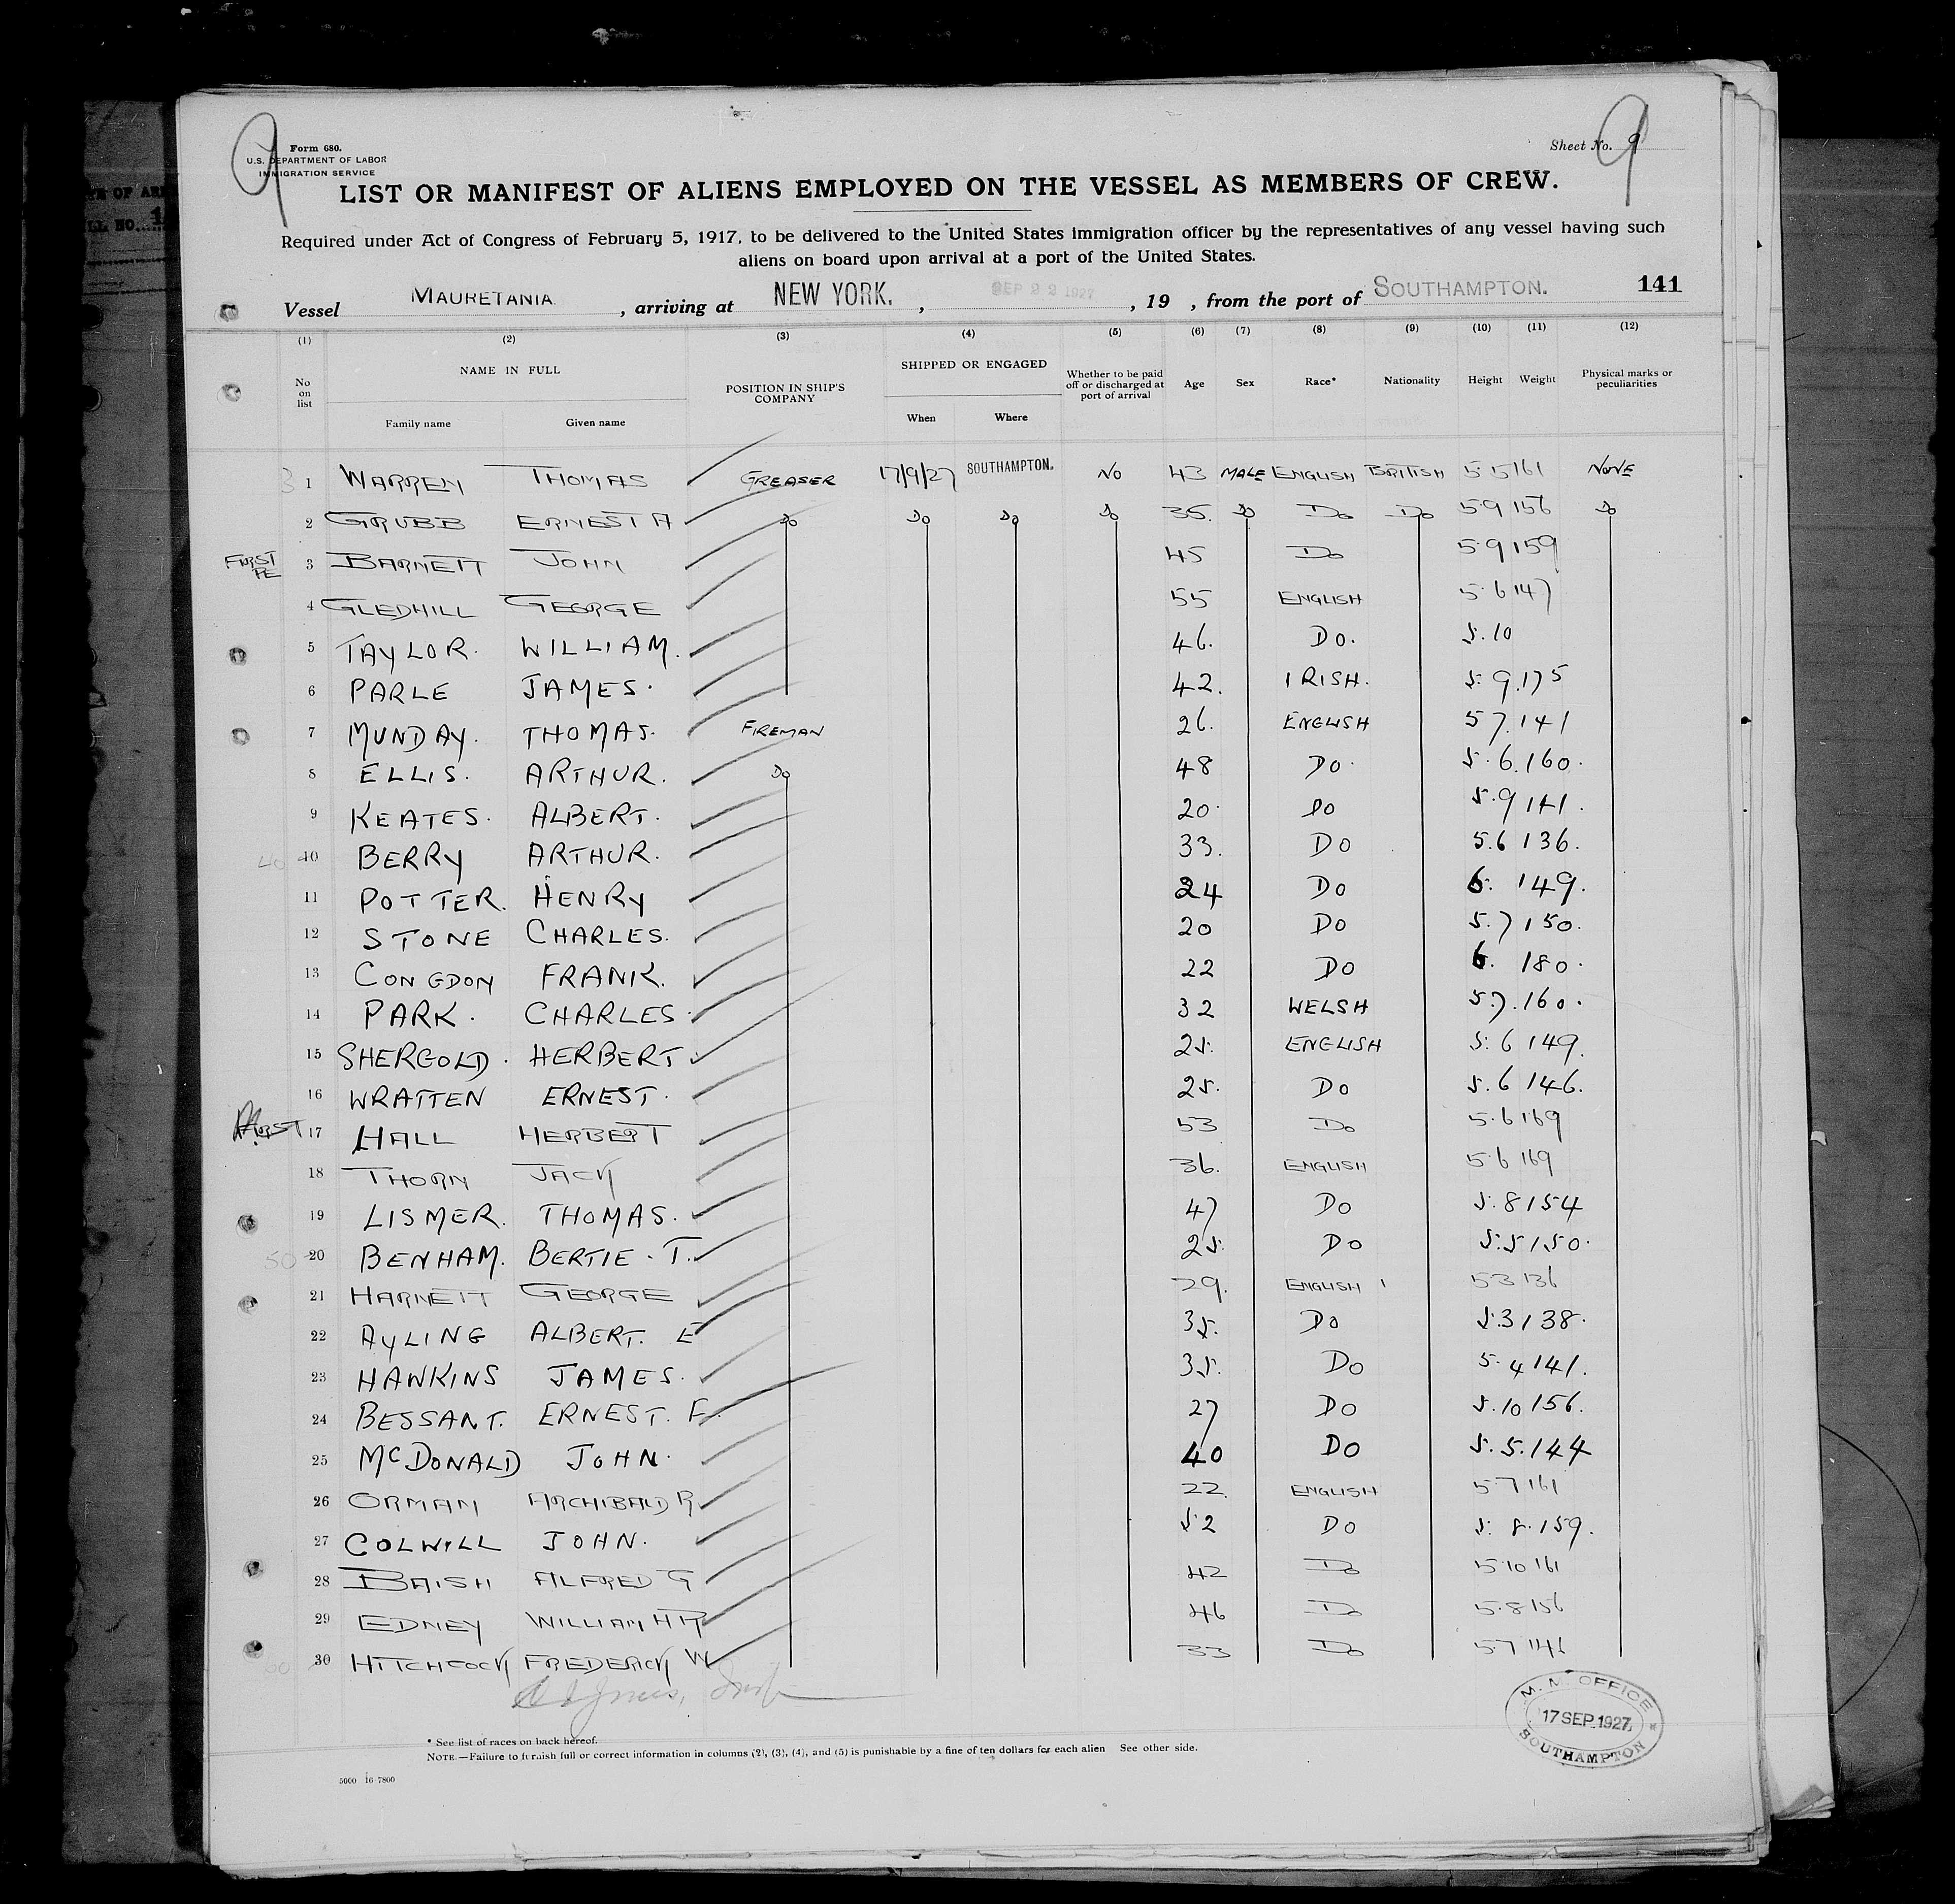 9
Form 680.
U.S. DEPARTMENT OF LABOR
IMMIGRATION SERVICE
Sheet No. 9
9
LIST OR MANIFEST OF ALIENS EMPLOYED ON THE VESSEL AS MEMBERS OF CREW.
Required under Act of Congress of February 5, 1917, to be delivered to the United States immigration officer by the representatives of any vessel having such
aliens on board upon arrival at a port of the United States.
141
Vessel MAURETANIA. , arriving at NEW YORK. , SEP 23 1927 , 19 , from the port of SOUTHAMPTON.
(1) (2) (3) (4) (5) (6) (7) (8) (9) (10) (11) (12)
No on list NAME IN FULL POSITION IN SHIP'S COMPANY SHIPPED OR ENGAGED Whether to be paid off or discharged at port of arrival Age Sex Race* Nationality Height Weight Physical marks or peculiarities
Family name Given name When Where
1 WARREN THOMAS GREASER 17/9/27 SOUTHAMPTON. NO 43 MALE ENGLISH BRITISH 5 5 161 NONE
2 GRUBB ERNEST A Do Do Do Do 35. Do Do Do 5 9 156 Do
FIRST 3 BARNETT JOHN 45 Do 5 9 159
4 GLEDHILL GEORGE 55 ENGLISH 5.6 147
5 TAYLOR. WILLIAM. 46. DO. 5.10
6 PARLE JAMES. 42. IRISH. 5.9.175
7 MUNDAY. THOMAS. FIREMAN 26. ENGLISH 5 7.141
8 ELLIS. ARTHUR. Do 48 DO. 5.6.160.
9 KEATES. ALBERT. 20. DO 5.9 141.
40 10 BERRY ARTHUR. 33. DO 5.6 136.
11 POTTER. HENRY 24 DO 6. 149.
12 STONE CHARLES. 20 DO 5.7 150.
13 CONGDON FRANK. 22 DO 6. 180.
14 PARK. CHARLES. 32 WELSH 5.7.160.
15 SHERGOLD. HERBERT. 25. ENGLISH 5.6 149.
16 WRATTEN ERNEST. 25. DO 5.6 146.
17 HALL HERBERT 53 Do 5.6 169
18 THORN JACK 36. ENGLISH 5.6 169
19 LISMER. THOMAS. 47 DO 5.8 154
50 20 BENHAM. BERTIE. T. 25. DO 5.5 150.
21 HARNETT GEORGE 29. ENGLISH 5 3 136
22 AYLING ALBERT. E 35. DO 5.3 138.
23 HAWKINS JAMES. 35. DO 5.4 141.
24 BESSANT. ERNEST. F. 27 DO 5.10 156.
25 McDONALD JOHN. 40 DO 5.5.144
26 ORMAN ARCHIBALD R 22. ENGLISH 5 7 161
27 COLWILL JOHN. 52 DO 5.8.159.
28 BAISH ALFRED G 42 Do 5 10 161
29 EDNEY WILLIAM H R 46 Do 5.8 156
30 HITCHCOCK FREDERICK W 33 Do 5 7 146
M. M. OFFICE
17 SEP. 1927
SOUTHAMPTON
* See list of races on back hereof.
NOTE.—Failure to furnish full or correct information in columns (2), (3), (4), and (5) is punishable by a fine of ten dollars for each alien See other side.
5000 16-7800